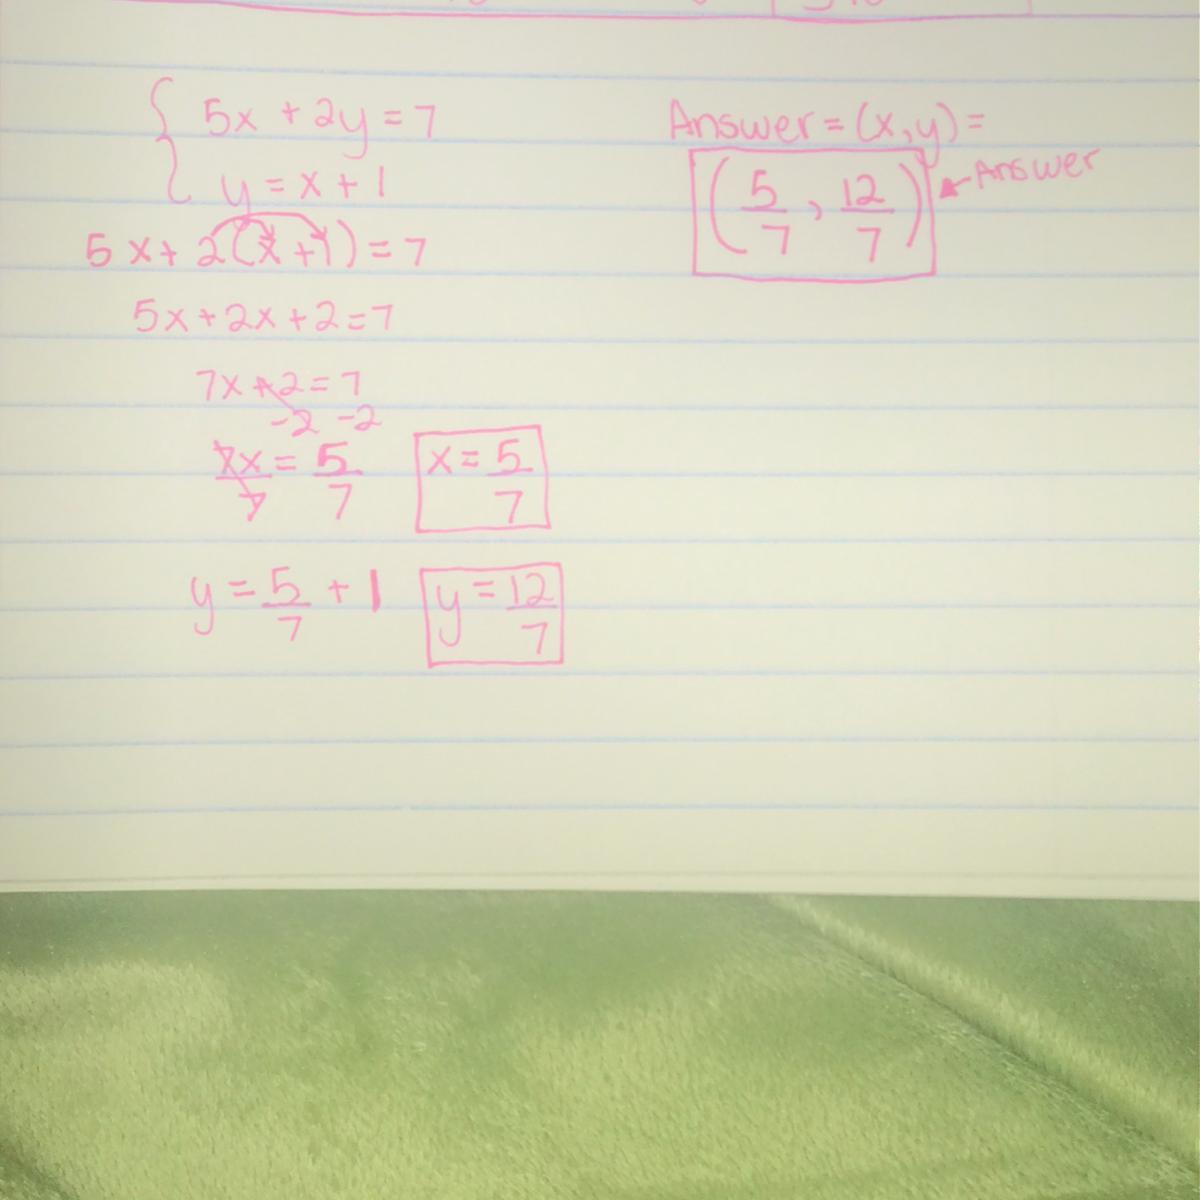 5x + 2y = 7
y = x + 1
5x + 2(x + 1) = 7
5x + 2x + 2 = 7
7x + 2 = 7
-2 -2
7x/7 = 5/7
x = 5/7
y = 5/7 + 1
y = 12/7
Answer = (x, y) =
(5/7, 12/7)
Answer